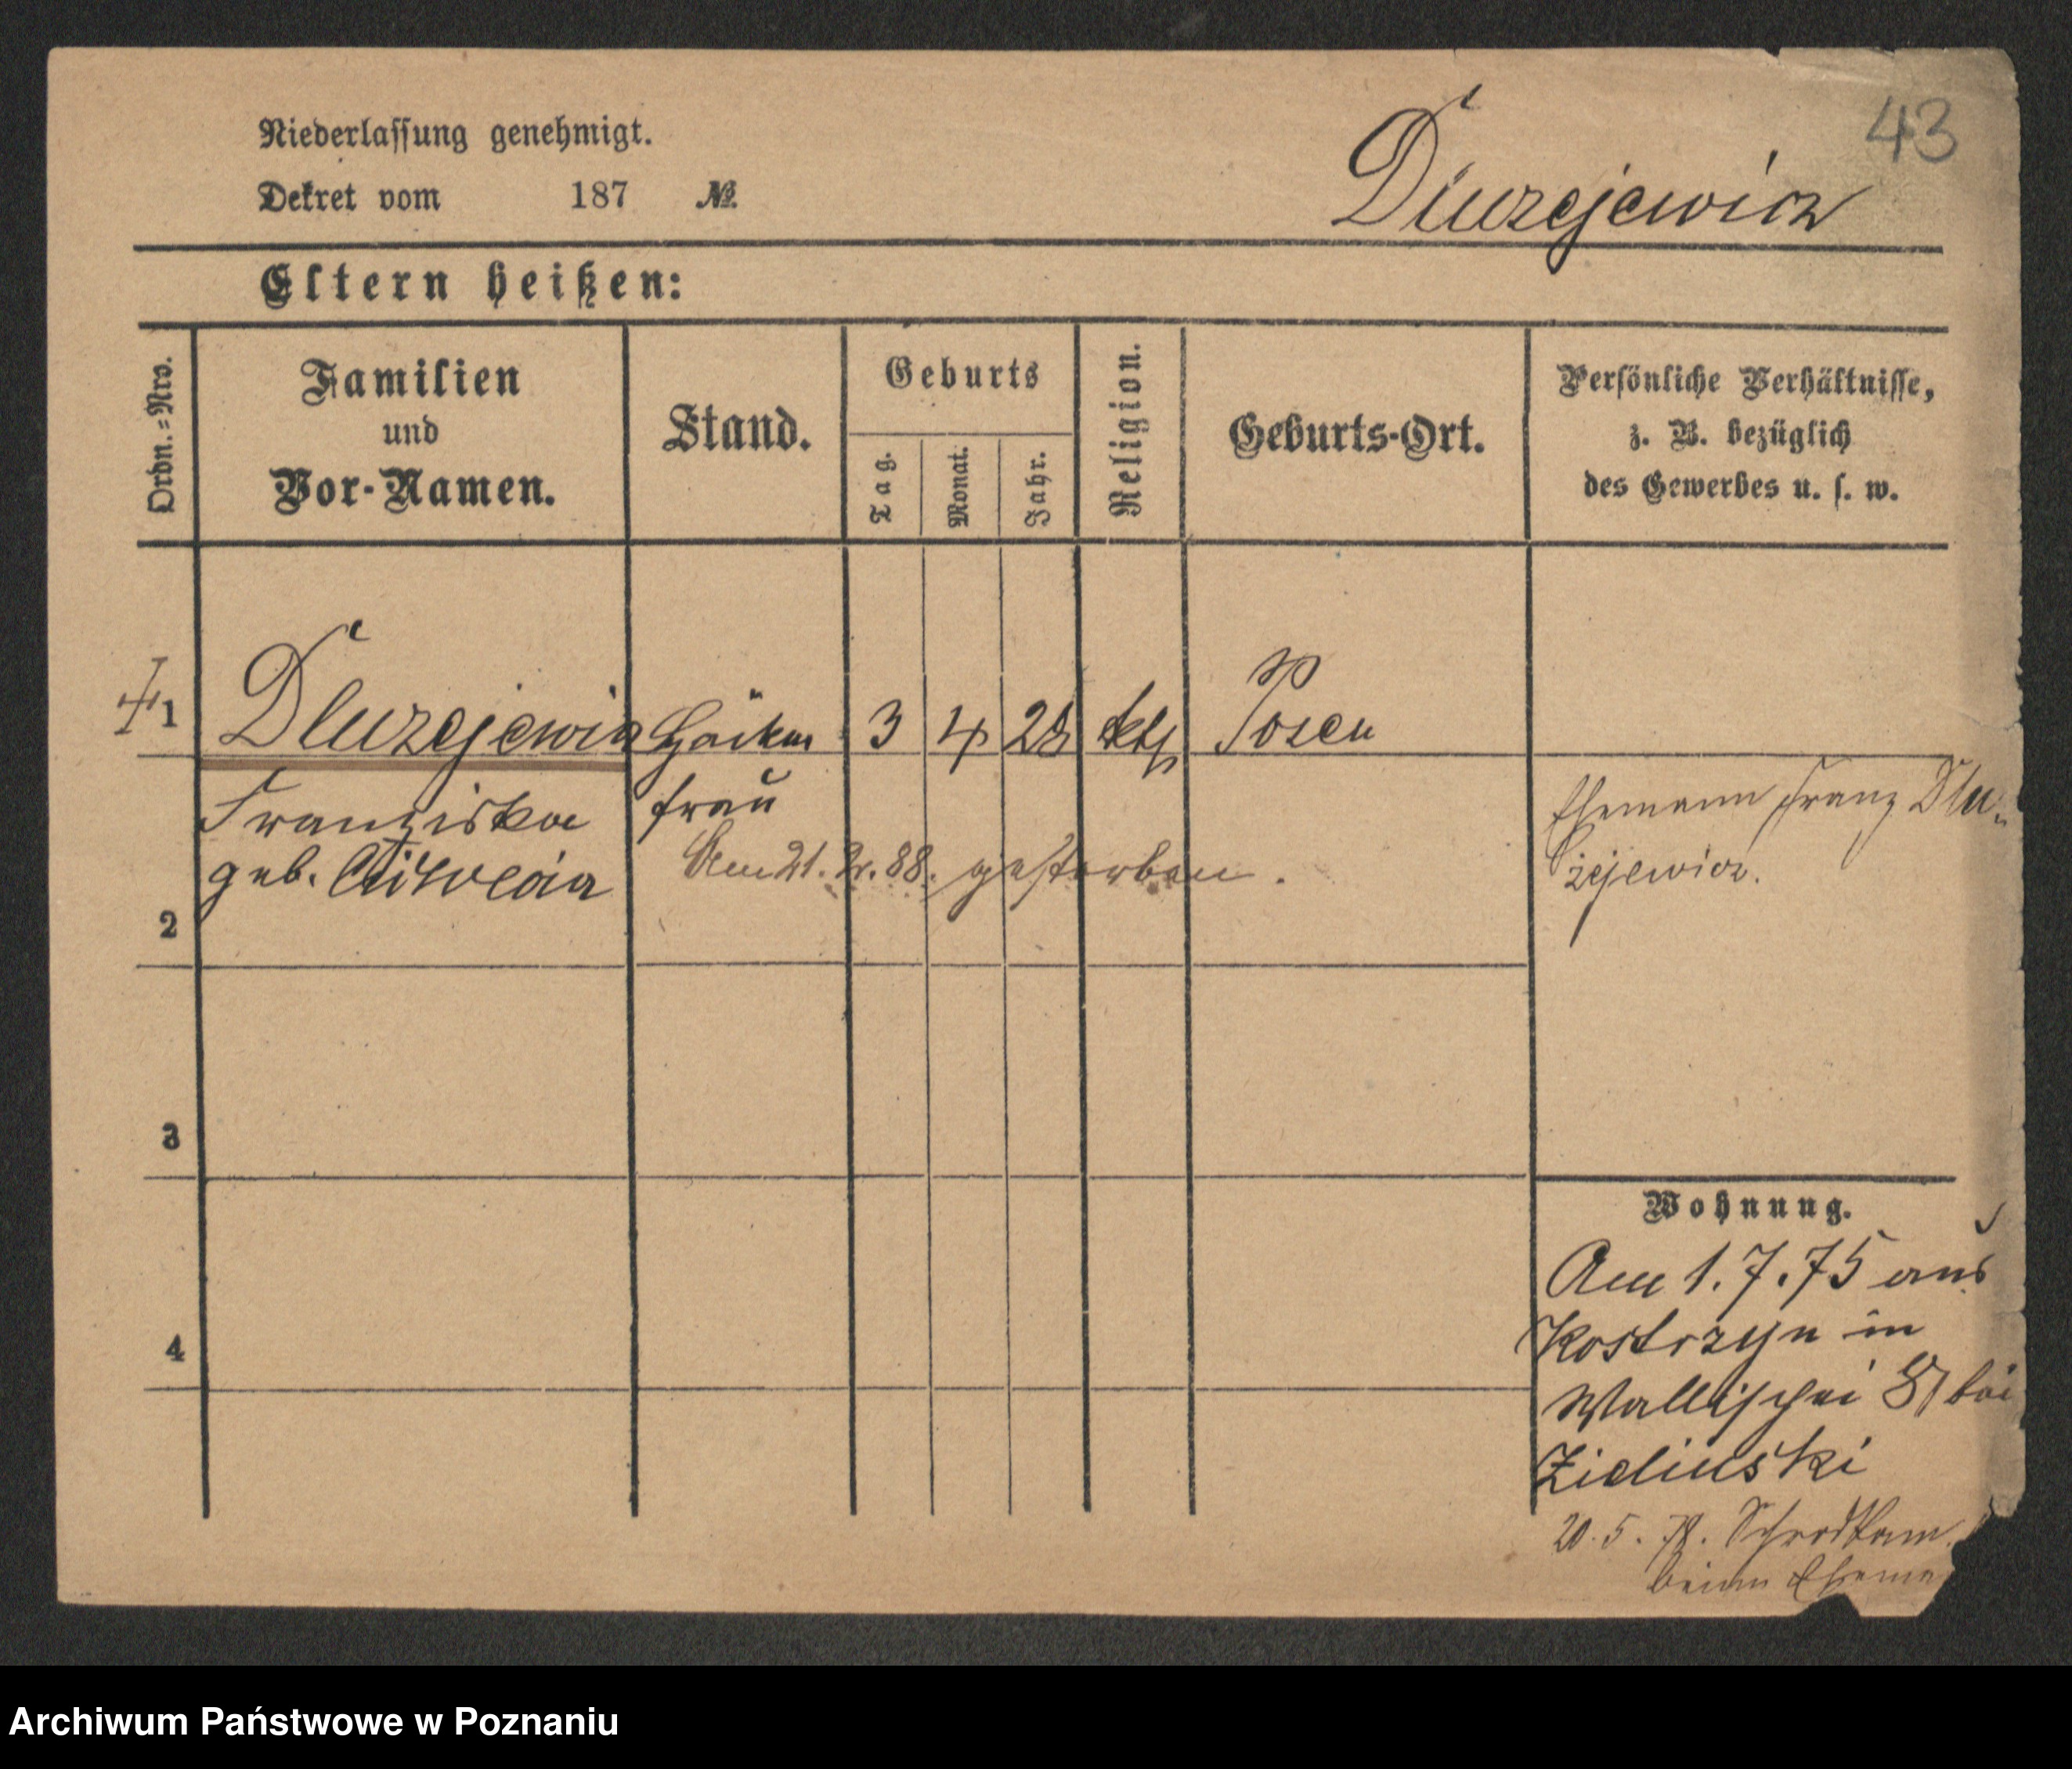 43
Niederlassung genehmigt.
Dekret vom 187 №
Dluzejewicz
Eltern heißen:
Ordn.=Nro.
Familien
und
Vor-Namen.
Stand.
Geburts
Tag.
Monat.
Jahr.
Religion.
Geburts-Ort.
Persönliche Verhältnisse,
z. B. bezüglich
des Gewerbes u. s. w.
1 Dluzejewicz 3 4 28 kth Posen
Franziska frau
geb.
Am 21. 2. 88. gestorben.
Ehemann Franz Dlu-
zejewicz.
2
3
4
Wohnung.
Am 1. 7. 75 aus
Kostrzyn in
Wallischei bei
Zielinski
20. 5. 78.
beim Ehema
Archiwum Państwowe w Poznaniu